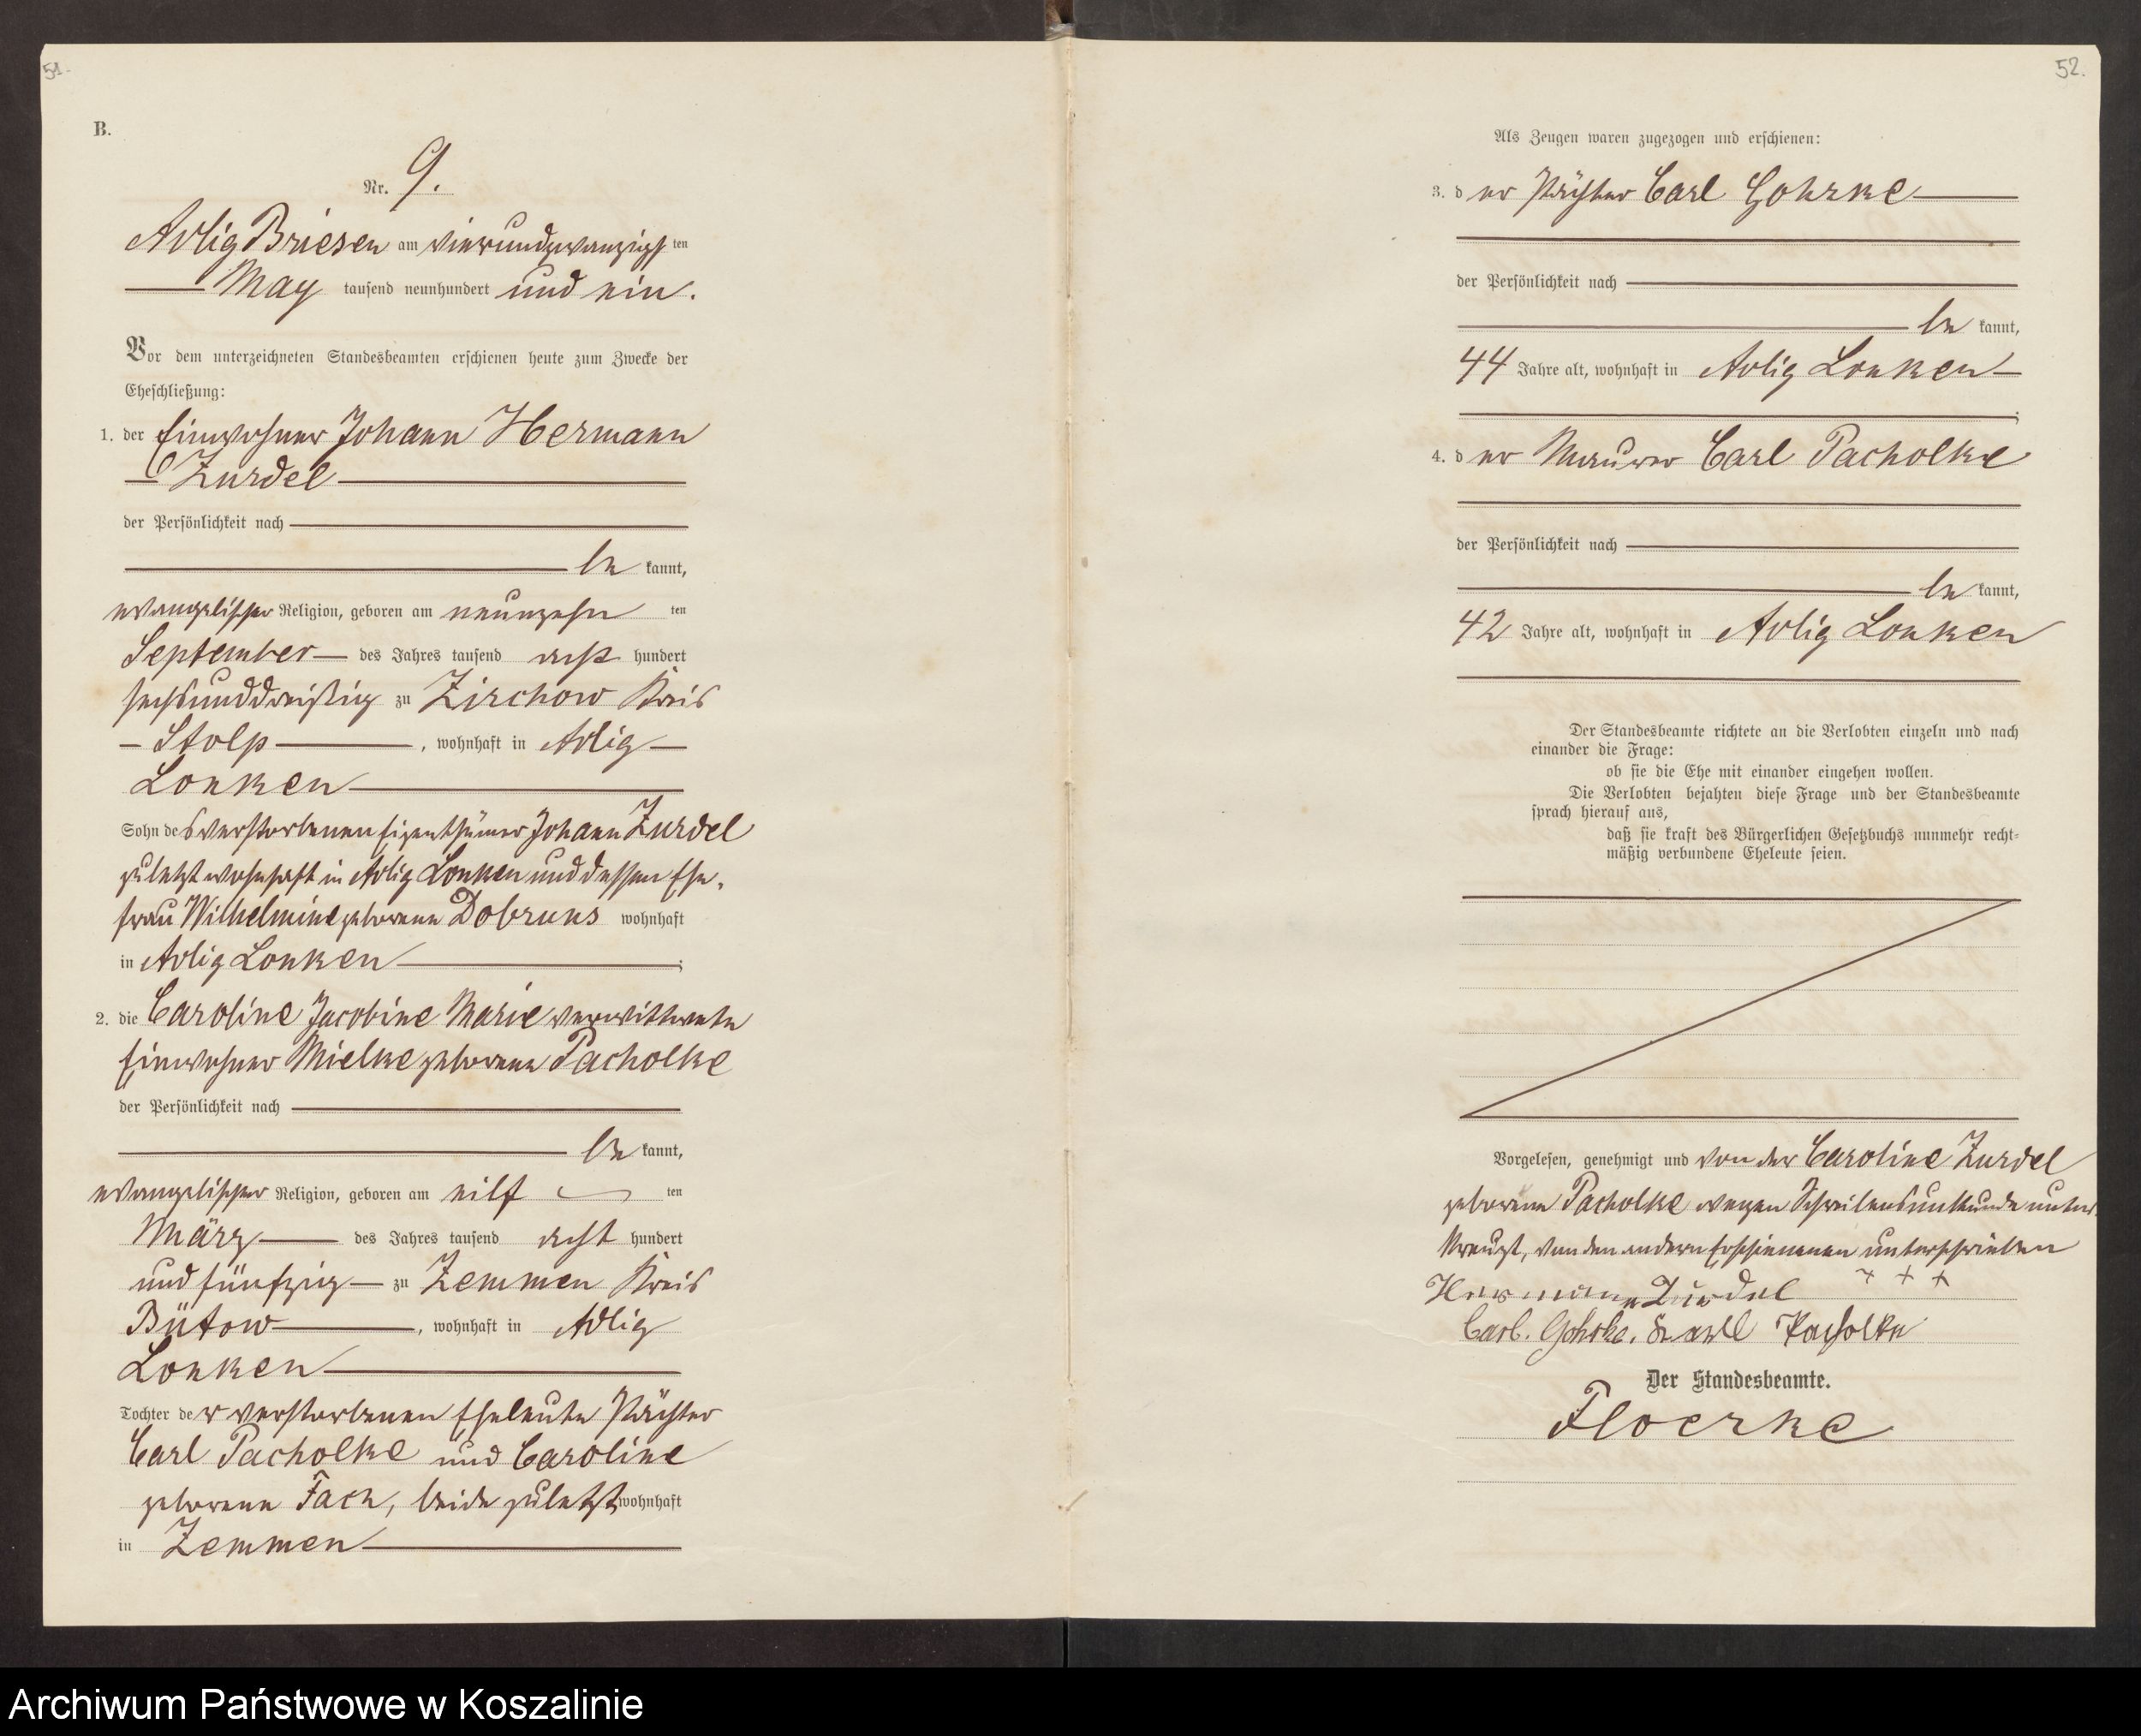 51.
B.
Nr. 9.
Adlig Briesen am vierundzwanzigsten
May tausend neunhundert und ein.
Vor dem unterzeichneten Standesbeamten erschienen heute zum Zwecke der
Eheschließung:
1. der Einwohner Johann Hermann
Zurdel
der Persönlichkeit nach
be kannt,
evangelischer Religion, geboren am neunzehn ten
September des Jahres tausend acht hundert
sechsunddreißig zu Zirchow Kreis
Stolp, wohnhaft in Adlig
Lonken
Sohn des verstorbenen Eigenthümer Johann Zurdel
zuletzt wohnhaft in Adlig Lonken und dessen Ehe-
frau Wilhelmine geborene Dobruns wohnhaft
in Adlig Lonken;
2. die Caroline Jacobine Marie verwittwete
Einwohner Mielke geborene Pacholke
der Persönlichkeit nach
be kannt,
evangelischer Religion, geboren am eilf ten
März des Jahres tausend acht hundert
und fünfzig zu Zemmen Kreis
Bütow, wohnhaft in Adlig
Lonken
Tochter der verstorbenen Eheleute Pächter
Carl Pacholke und Caroline
geborene Fach, beide zuletzt wohnhaft
in Zemmen
52.
Als Zeugen waren zugezogen und erschienen:
3. d er Pächter Carl Gohrke
der Persönlichkeit nach
be kannt,
44 Jahre alt, wohnhaft in Adlig Lonken
;
4. d er Maurer Carl Pacholke
der Persönlichkeit nach
be kannt,
42 Jahre alt, wohnhaft in Adlig Lonken
Der Standesbeamte richtete an die Verlobten einzeln und nach
einander die Frage:
ob sie die Ehe mit einander eingehen wollen.
Die Verlobten bejahten diese Frage und der Standesbeamte
sprach hierauf aus,
daß sie kraft des Bürgerlichen Gesetzbuchs nunmehr recht-
mäßig verbundene Eheleute seien.
Vorgelesen, genehmigt und von der Caroline Zurdel
geborene Pacholke wegen Schreibensunkunde unter-
kreuzt, von den andern Erschienenen unterschrieben
Hermann Zurdel + + +
Carl. Gohrke. Karl Pacholke
Der Standesbeamte.
Floerke
Archiwum Państwowe w Koszalinie